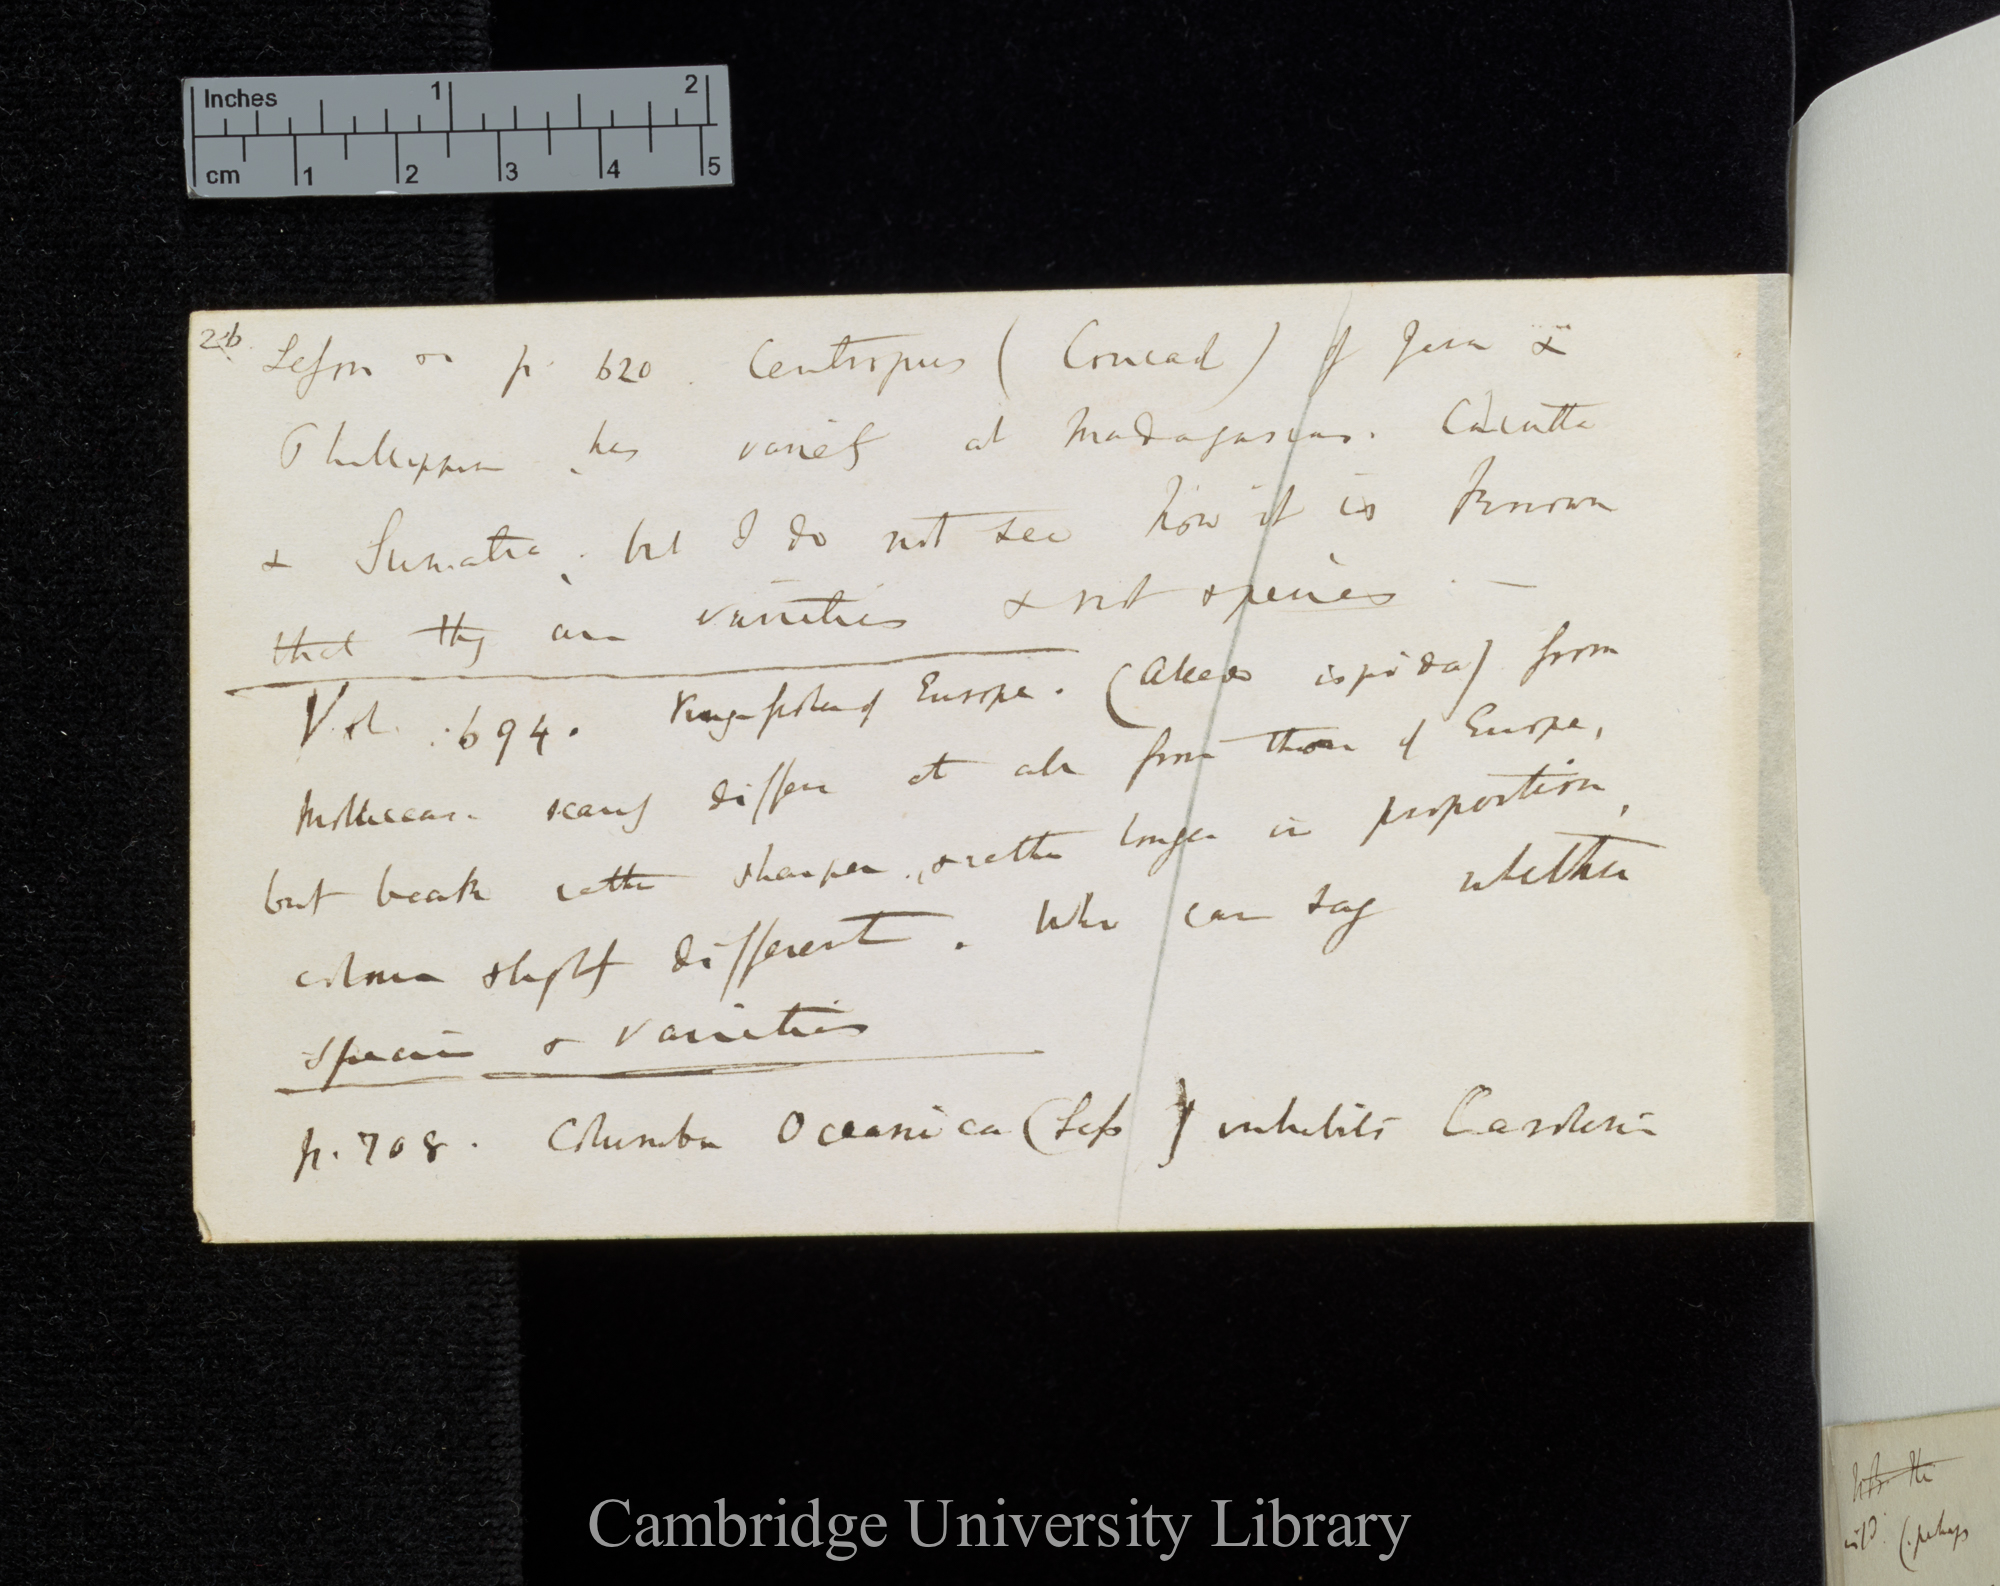 Inches 1 2
cm 1 2 3 4 5
26 Lesson on p. 620. Centropus (Coucal) of Java &
Phillippines has variety at Madagascar. Calcutta
& Sumatra, but I do not see how it is known
that they are varieties & not species —
Vol. : 694. Kingfisher of Europe. (Alcedo ispida) from
Moluccas scarcely differ at all from those of Europe,
but beak rather sharper, & rather longer in proportion,
colour slightly different. Who can say whether
species or varieties
p. 708. Columba Oceanica (Less) inhabits Caroline
the
wild. (perhaps
Cambridge University Library